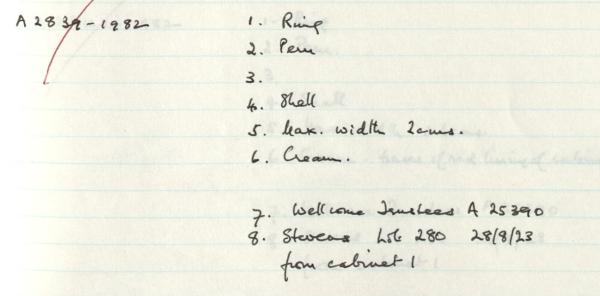 A 2839-1982
1. Ring
2. Peru
3.
4. Shell
5. Max. width 2cms.
6. Cream.
7. Wellcome Trustees A 25390
8. Stevens Lot 280 28/8/23
from cabinet 1